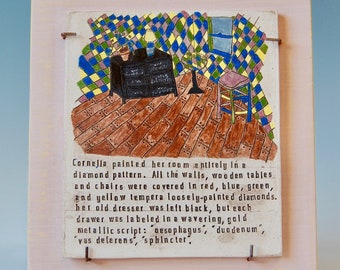 Cornelia painted her room entirely in a
diamond pattern. All the walls, wooden tables
and chairs were covered in red, blue, green,
and yellow tempera loosely-painted diamonds.
her old dresser was left black, but each
drawer was labeled in a wavering, gold
metallic script: "oesophagus", "duodenum",
"vas deferens", "sphincter".